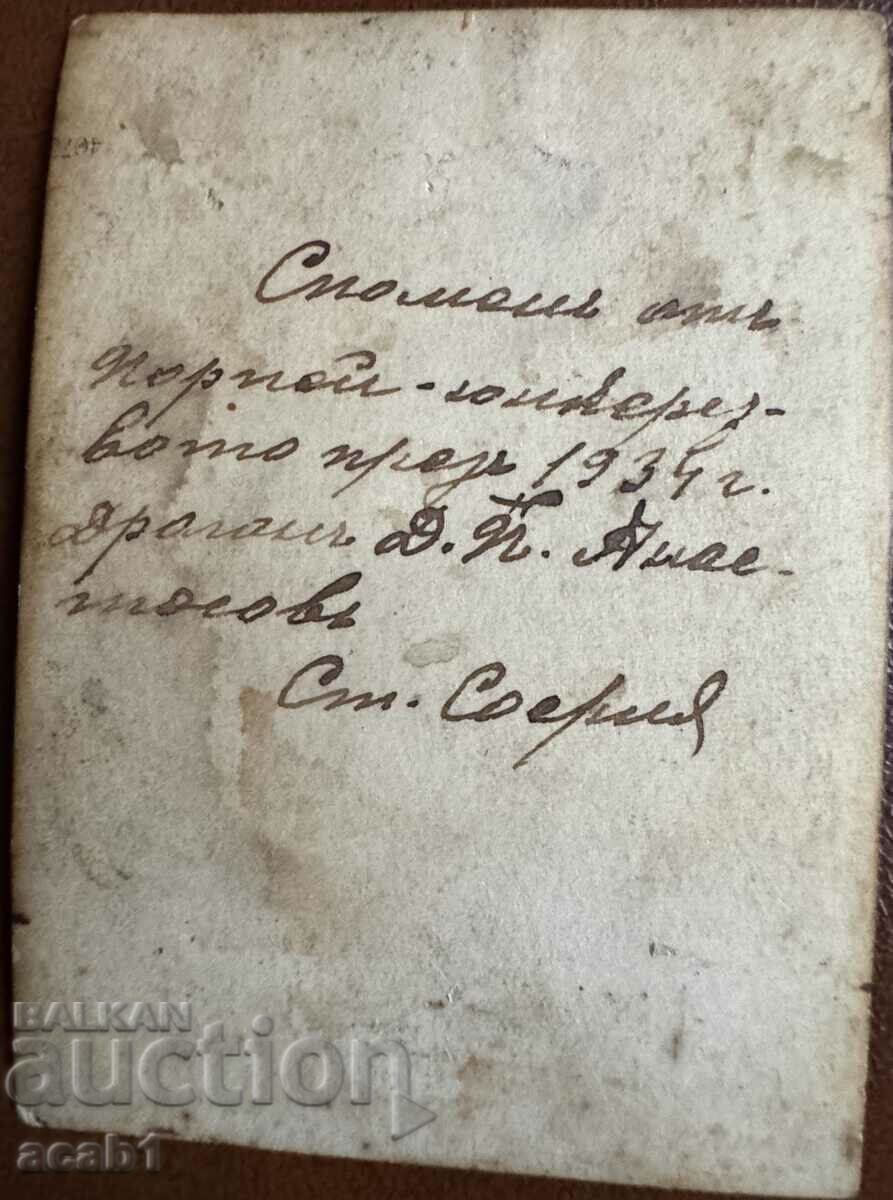 Споменъ отъ
Портѫпей-юнкерс-
вото презъ 1934 г.
Драганъ Д. П. Анас-
тосовъ
Ст. София
BALKAN
auction
acab1